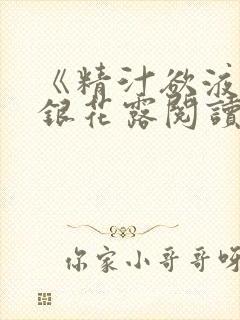 《精汁欲液
銀花露閱讀
你家小哥哥呀